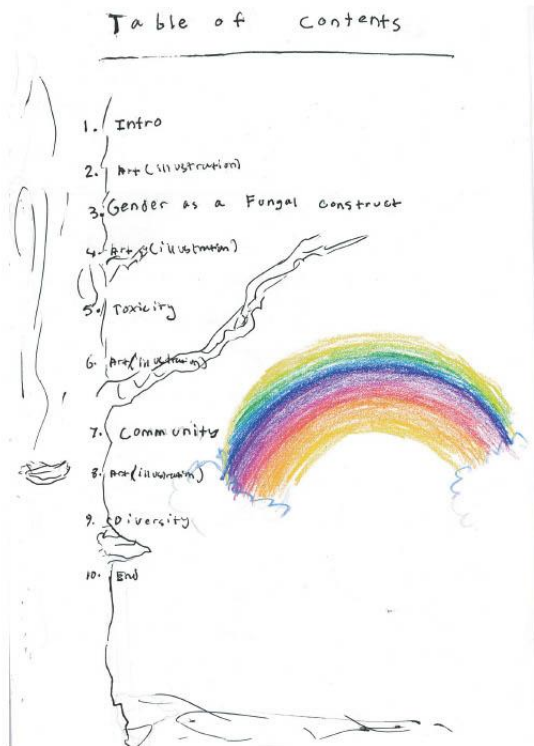 Table of Contents
1. Intro
2. Art (illustration)
3. Gender as a Fungal construct
4. Art (illustration)
5. Toxicity
6. Art (illustration)
7. Community
8. Art (illustration)
9. Diversity
10. End